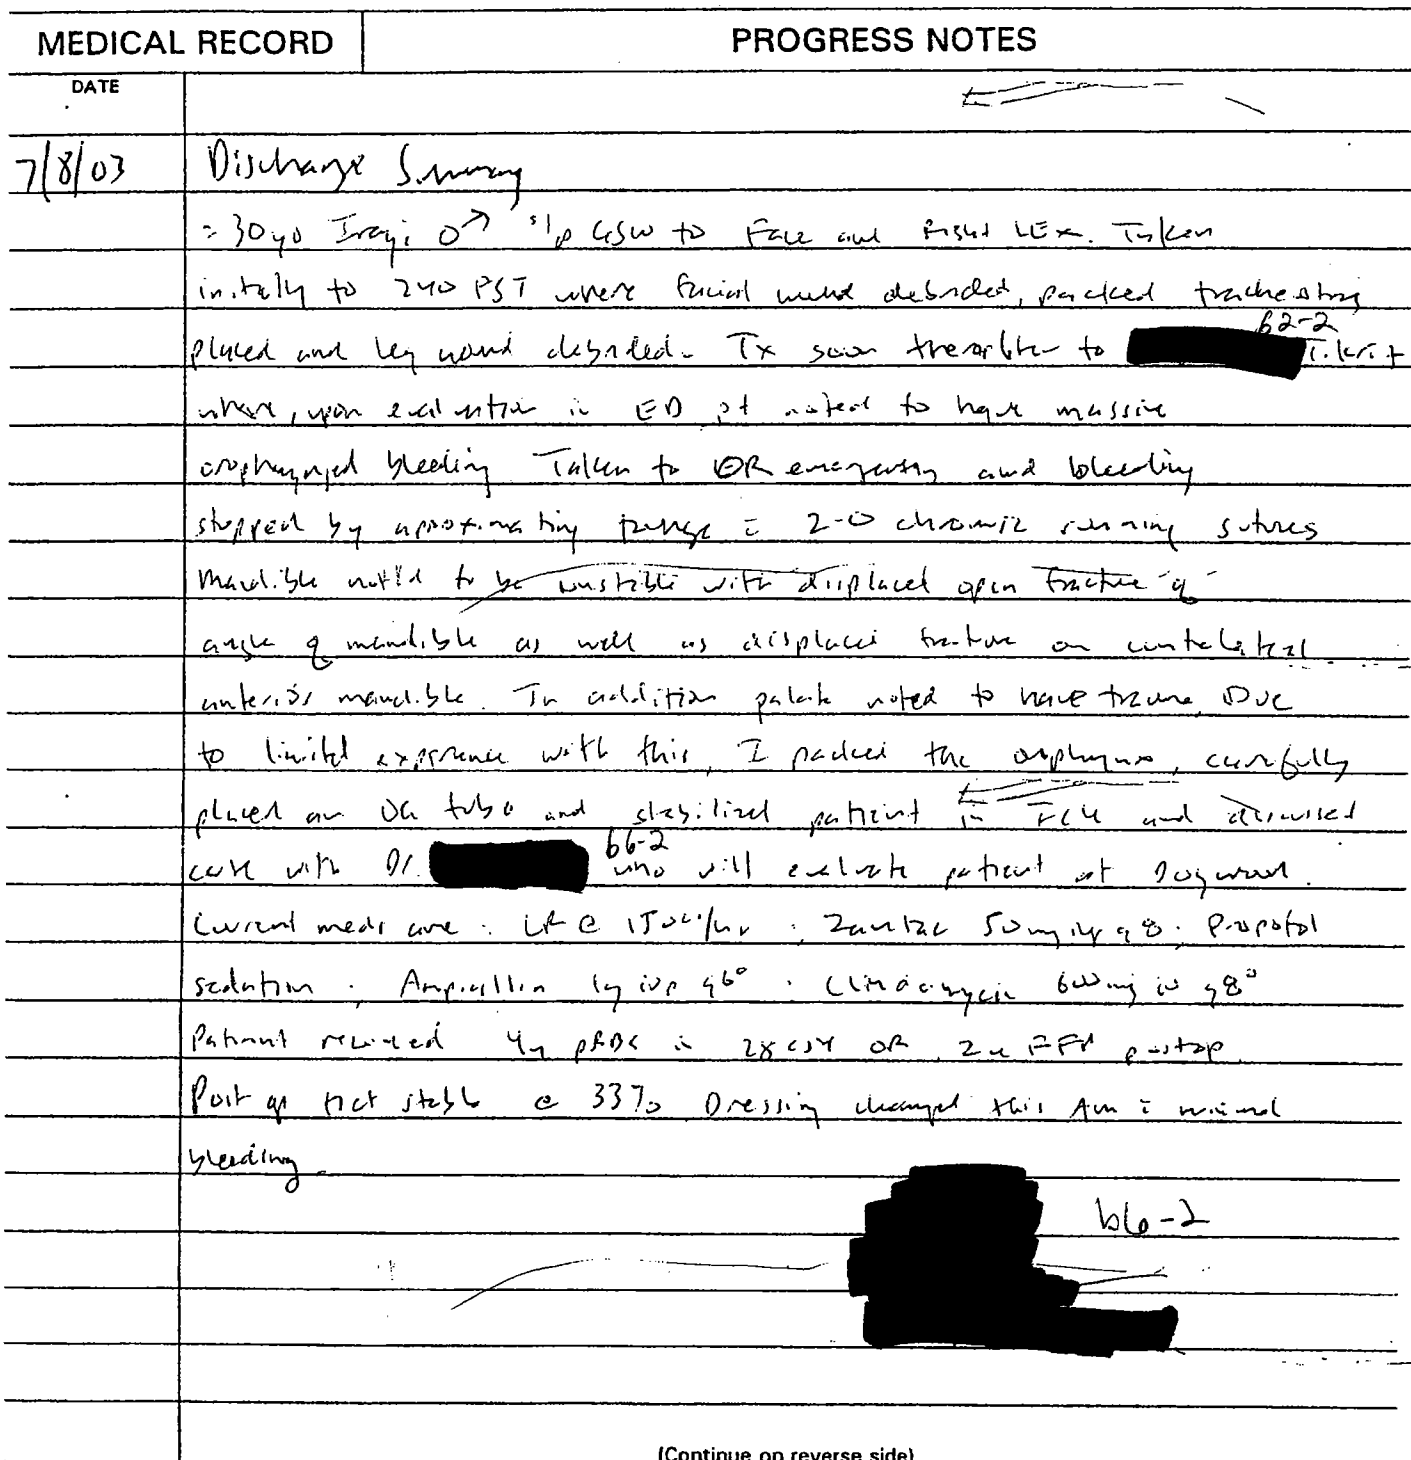 MEDICAL RECORD
PROGRESS NOTES
DATE
7/8/03 Discharge Summary
≈ 30yo Iraqi ♂ s/p GSW to Face and Right LEx. Taken
initally to 240 FST where facial wound debrided, packed tracheostomy
b2-2
placed and leg wound debrided. Tx soon thereafter to Tikrit
where, upon evaluation in ED pt noted to have massive
oropharyngeal bleeding Taken to OR emergently and bleeding
stopped by approximating tongue c̄ 2-0 chromic running sutures
Mandible noted to be unstable with displaced open fracture of
angle of mandible as well as displaced fracture on contralateral
anterior mandible. In addition palate noted to have trauma. Due
to limited experience with this, I packed the oropharynx, carefully
placed an OG tube and stabilized patient in ICU and discussed
b6-2
care with Dr. who will evaluate patient at Dogwood.
Current meds are: LR @ 150cc/hr . Zantac 50mg iv q8 . Propofol
sedation . Ampicillin 1g ivp q6° . Clindamycin 600mg iv q8°
Patient received 4u pRBC in OR, 2u FFP postop.
Post op Hct stable @ 33% Dressing changed this Am c̄ minimal
bleeding.
b6-2
(Continue on reverse side)